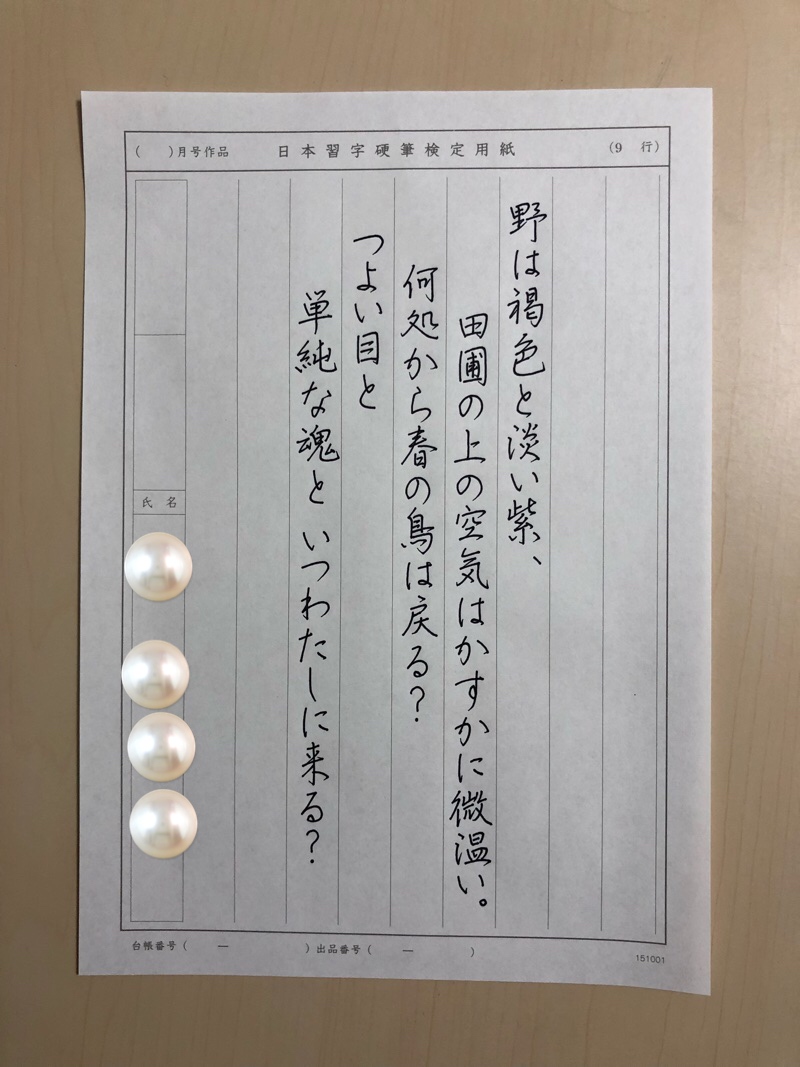 ( )月号作品 日本習字硬筆検定用紙 (9 行)
野は褐色と淡い紫、
田圃の上の空気はかすかに微温い。
何処から春の鳥は戻る?
つよい目と
単純な魂と いつわたしに来る?
氏名
台帳番号( ー )出品番号( ー )
151001